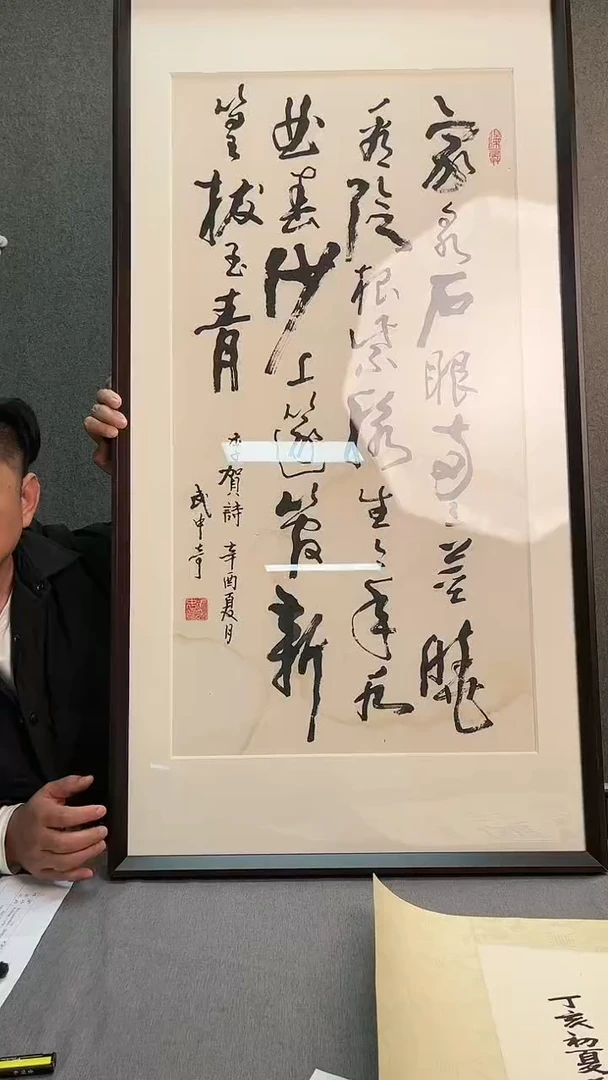 家泉石眼兩三莖曉
看陰根紫生今年水
曲春沙上篴管新
篁拔玉青
李賀詩 辛酉夏月
武中奇
丁亥初夏